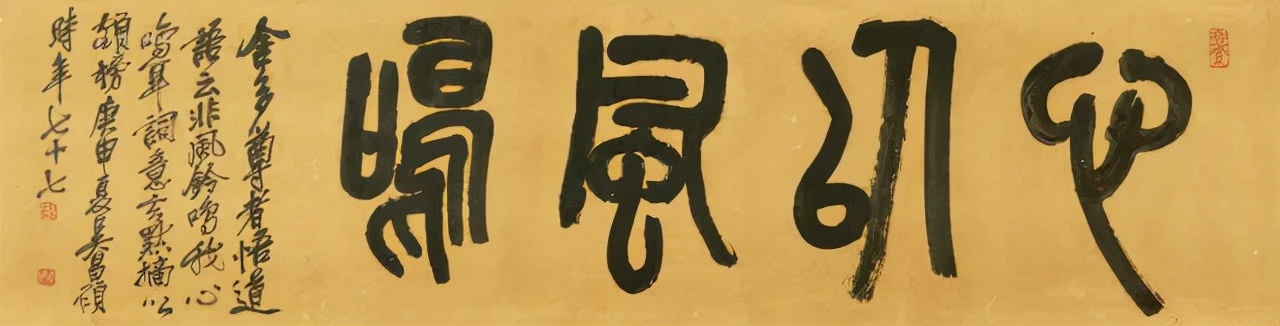 心以風鳴
舍多尊者悟道
語云非風鈴鳴我心
鳴耳詞意玄默摘以
額榜庚申夏吳昌碩
時年七十七